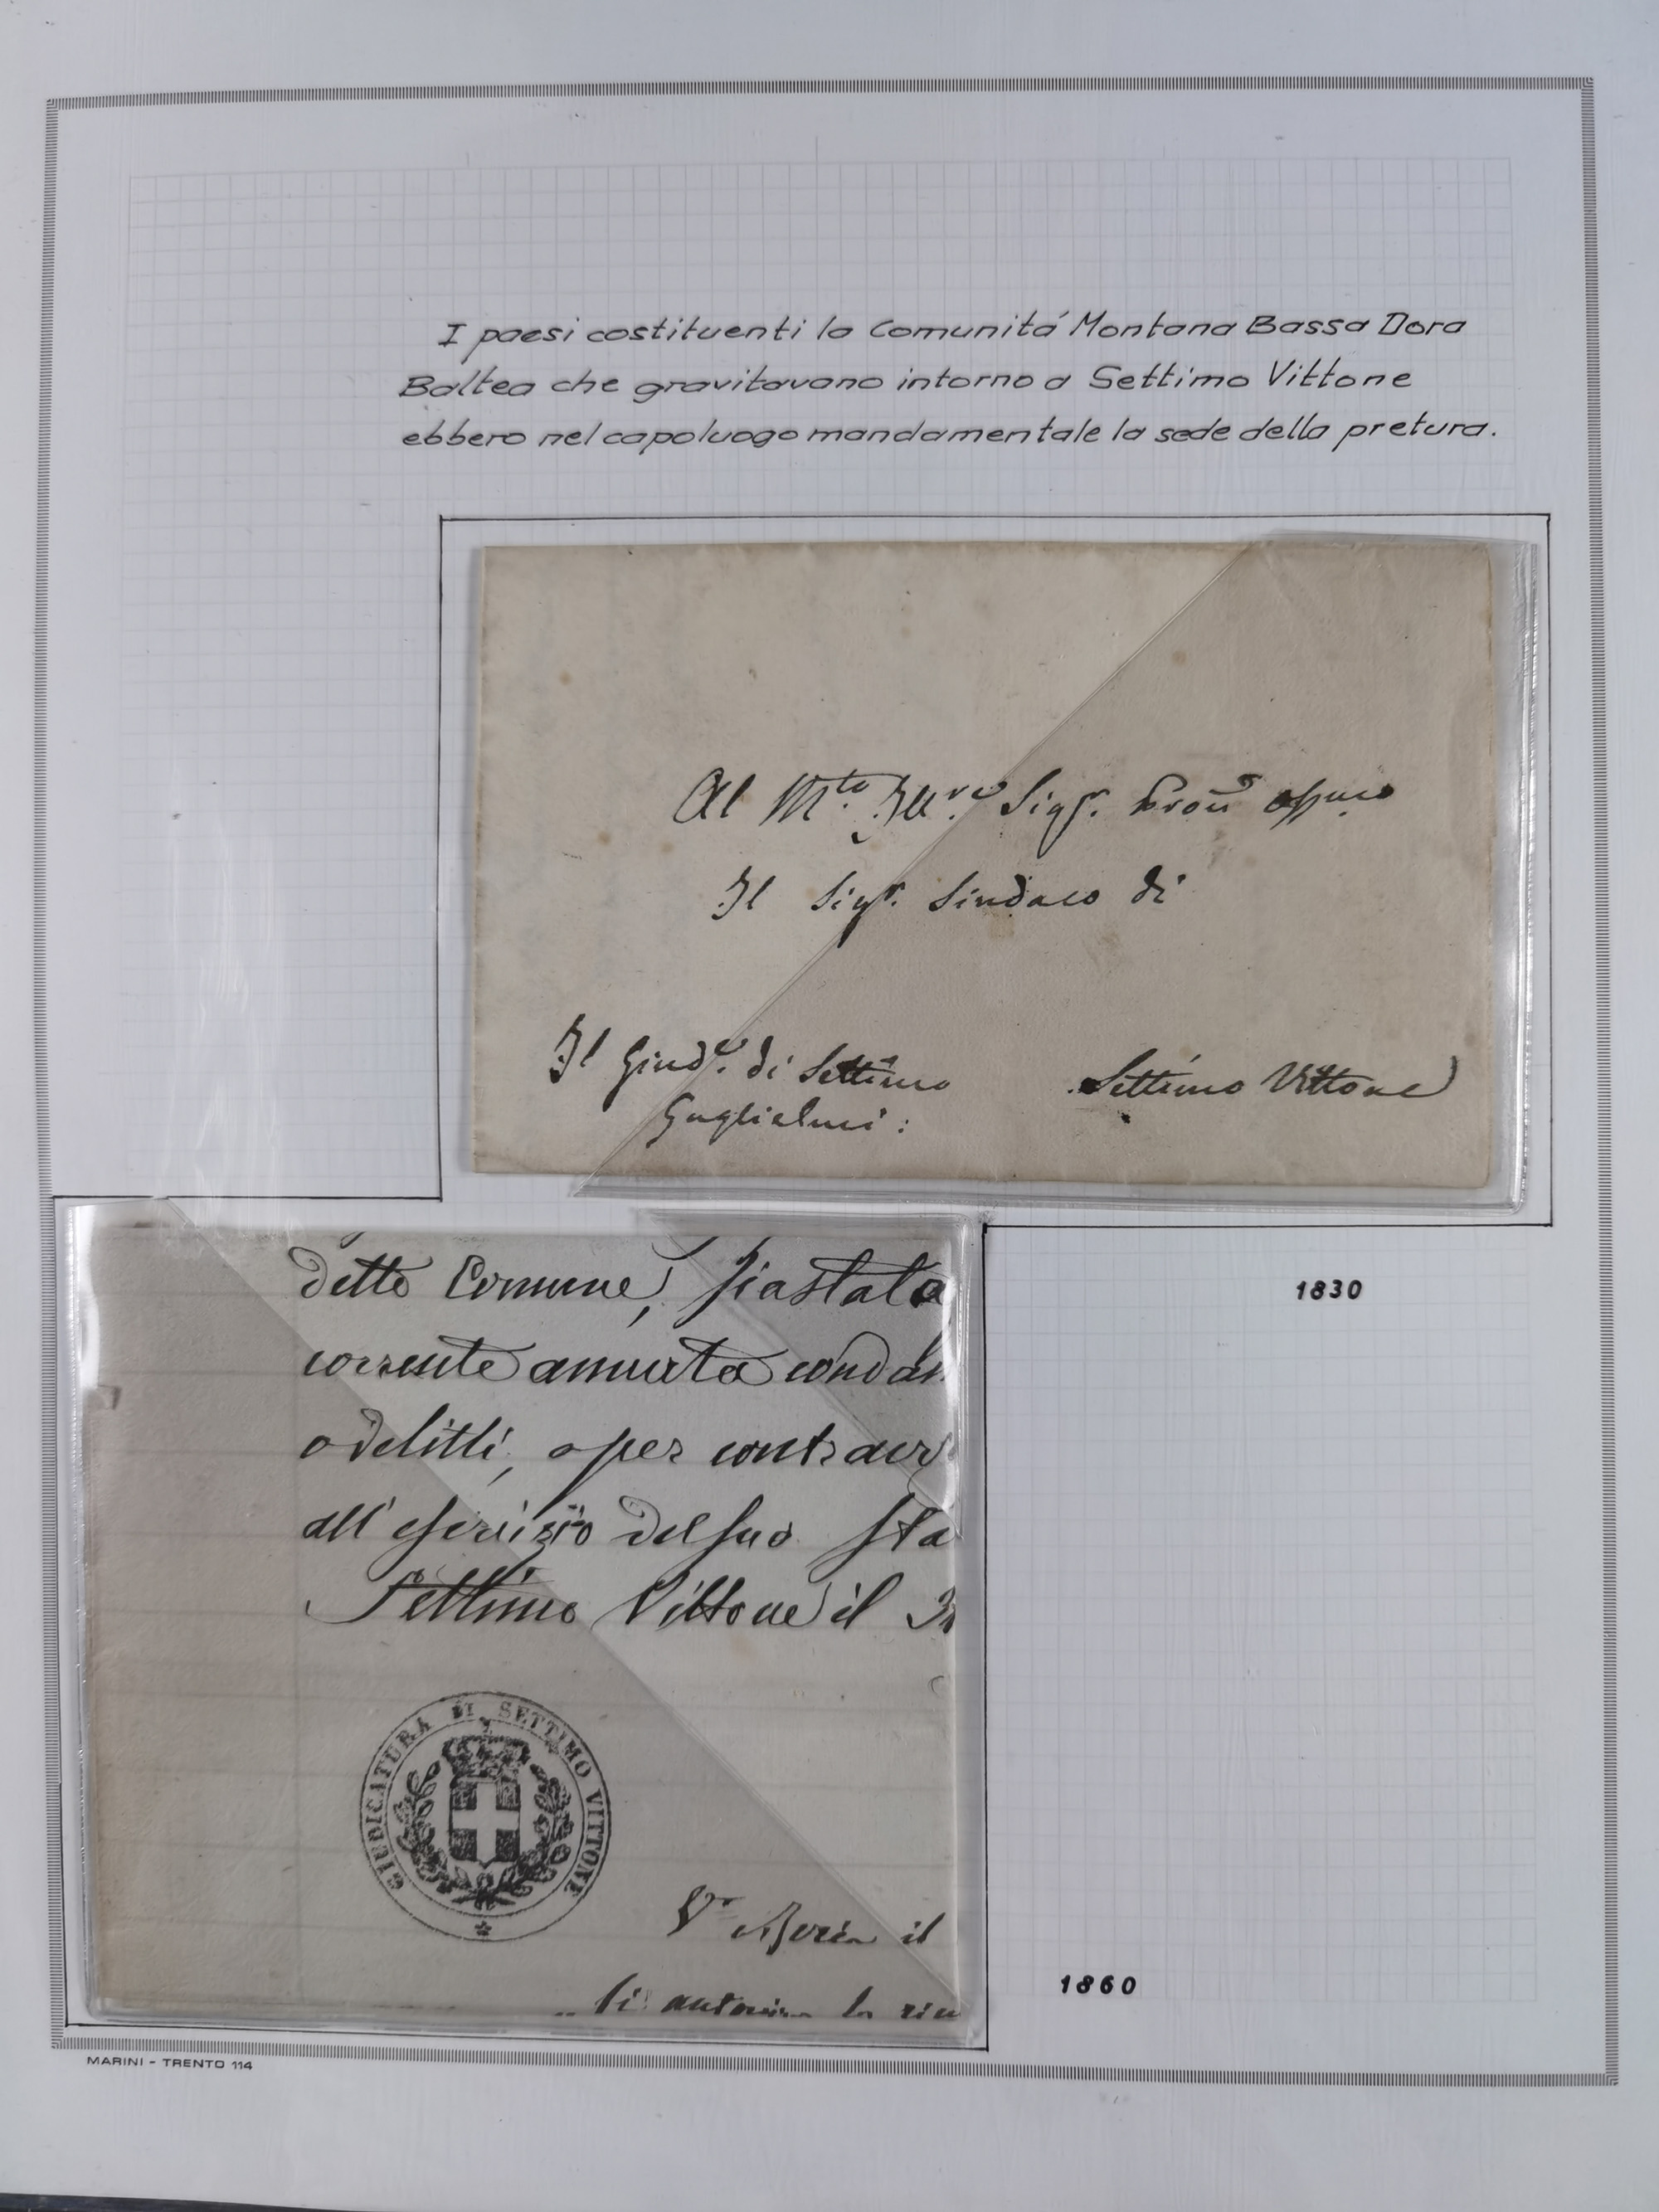 I paesi costituenti la Comunitá Montana Bassa Dora
Baltea che gravitavano intorno a Settimo Vittone
ebbero nel capoluogo mandamentale la sede della pretura.
Al M.to Ill.re Sigr.
Il Sigr. Sindaco di
Il Giud.e di Settimo
Guglielmi:
Settimo Vittone
1830
detto Comune, sia stata
corrente annata condan
o delitti, o per contrav
all'esercizio del suo sta
Settimo Vittone il
GIUDICATURA DI SETTIMO VITTONE
il
1860
MARINI - TRENTO 114